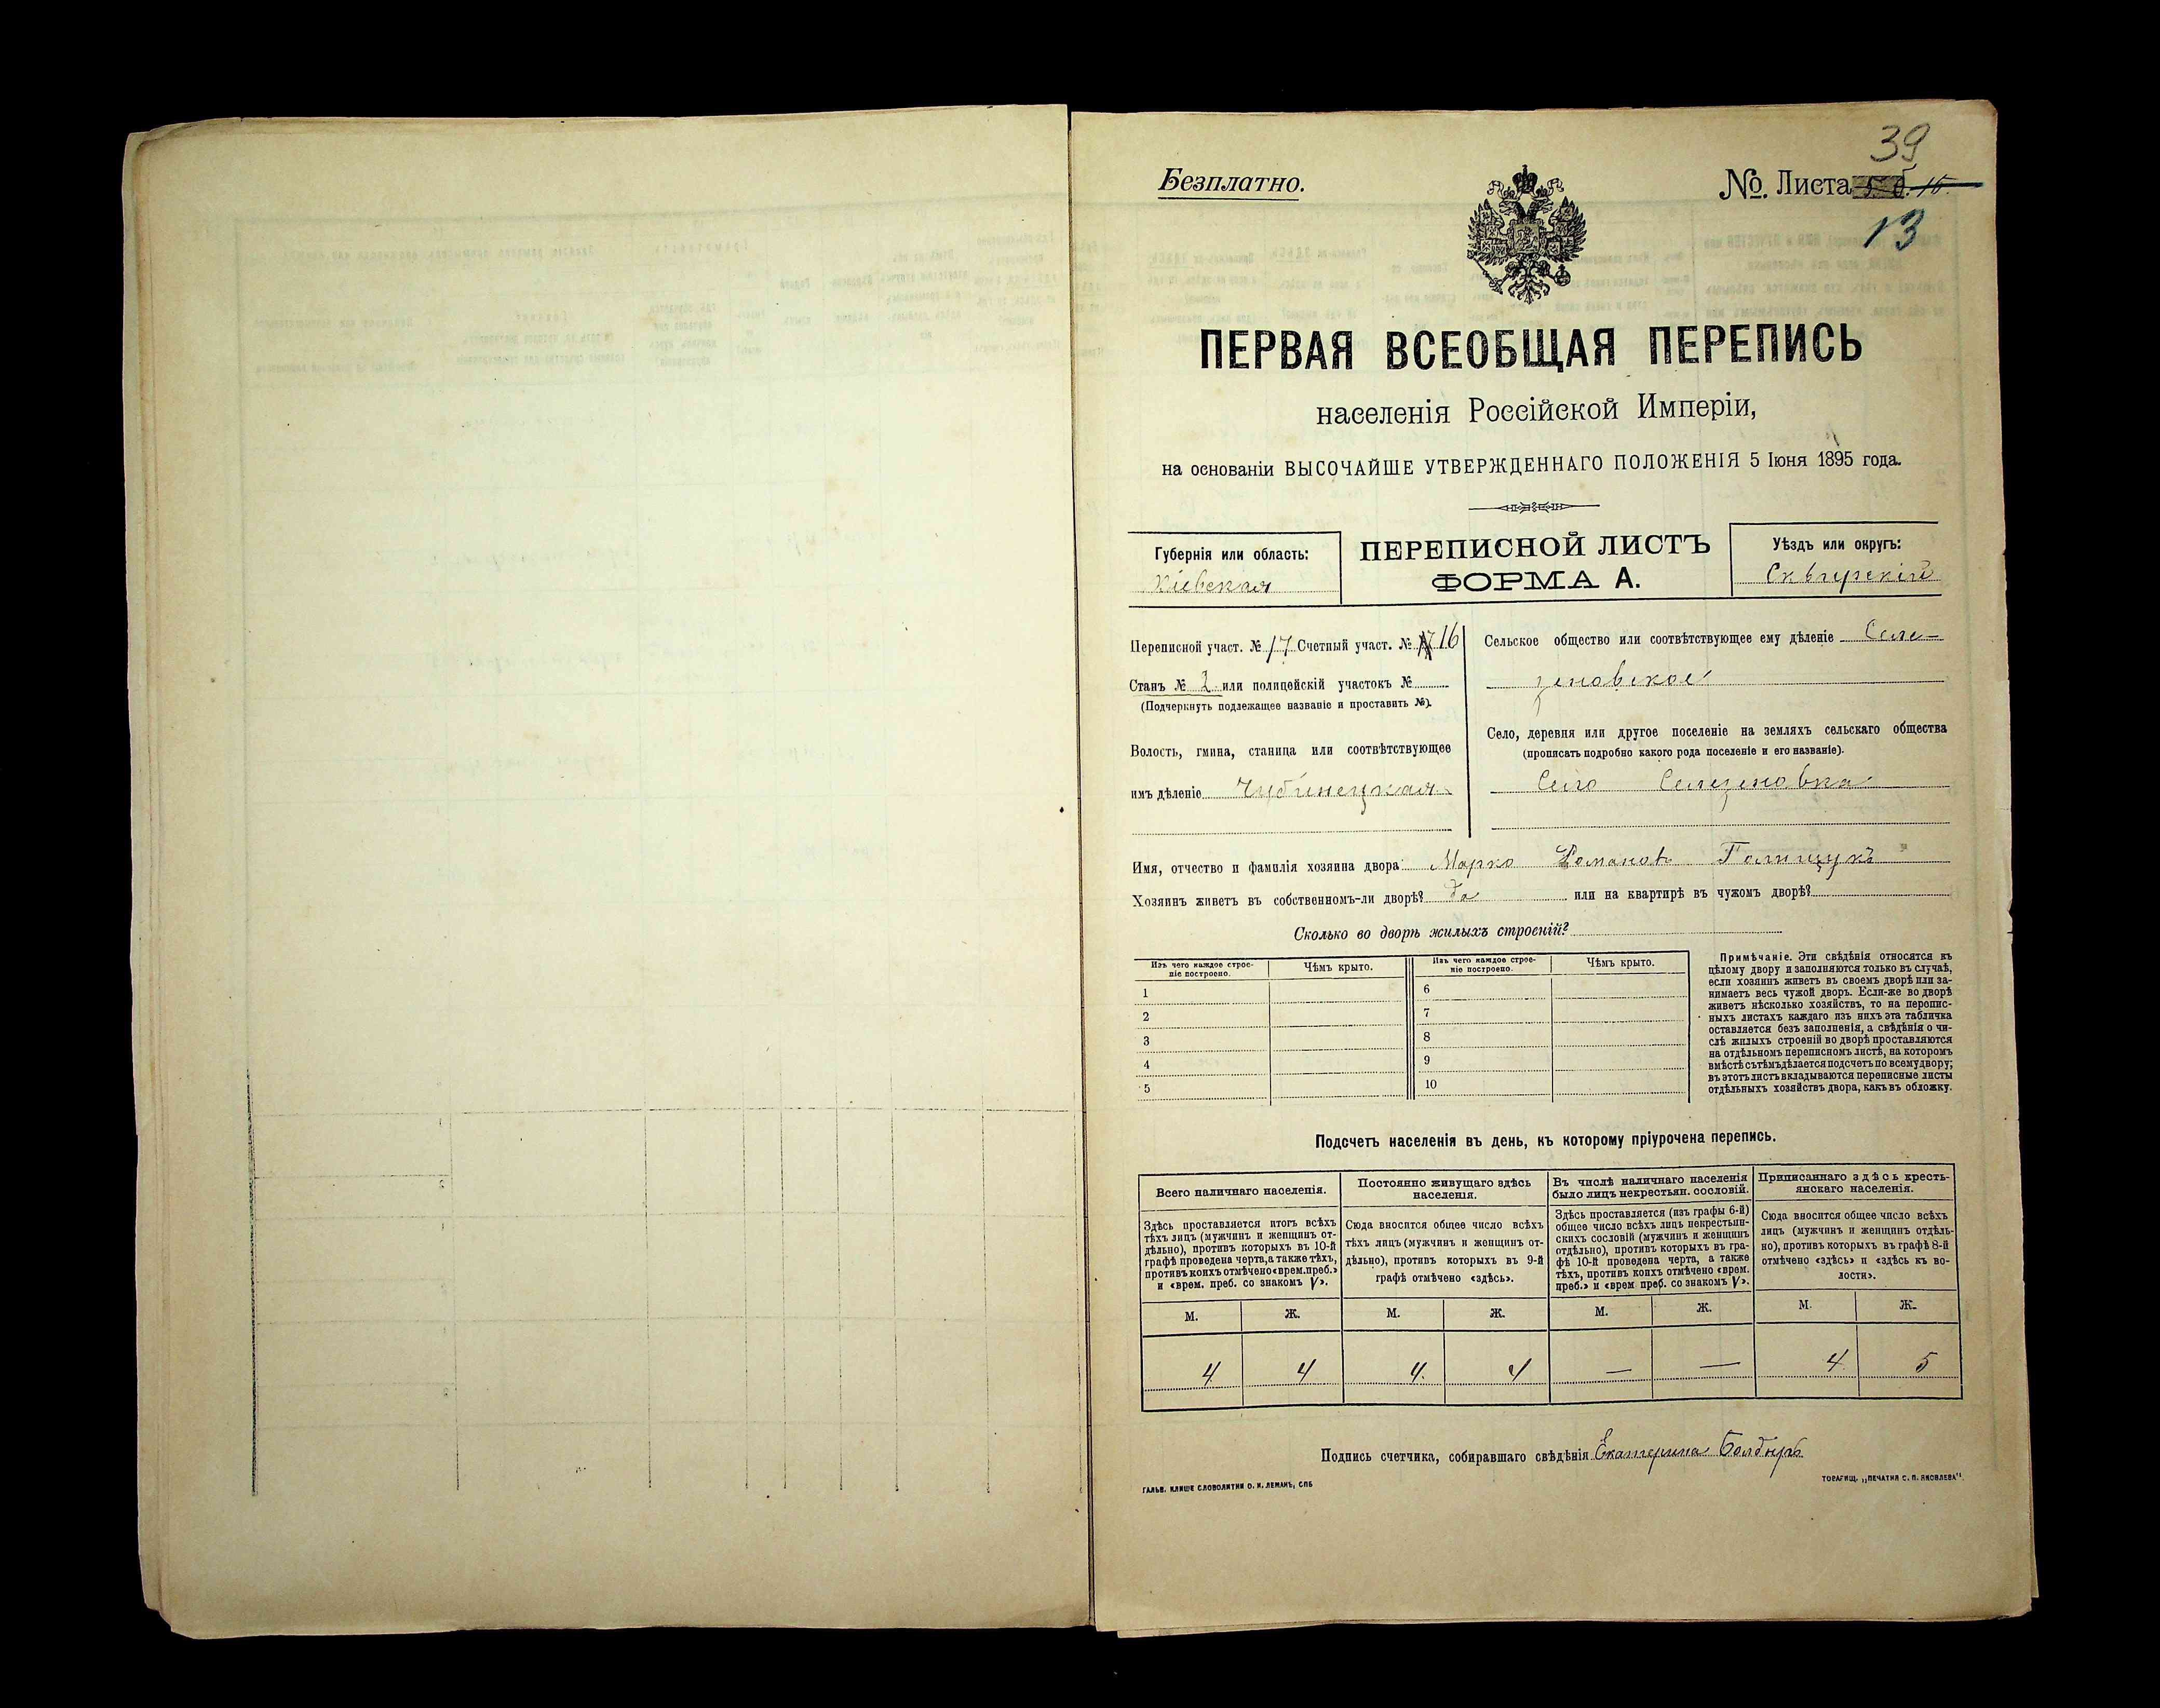 39
Безплатно.
№. Листа
13
ПЕРВАЯ ВСЕОБЩАЯ ПЕРЕПИСЬ
населенія Россійской Имперіи,
на основаніи ВЫСОЧАЙШЕ УТВЕРЖДЕННАГО ПОЛОЖЕНІЯ 5 Іюня 1895 года.
Губернія или область:
Кіевская
ПЕРЕПИСНОЙ ЛИСТЪ
ФОРМА А.
Уѣздъ или округъ:
Сквирскій
Переписной участ. № 17 Счетный участ. № 16
Станъ № 2 или полицейскій участокъ №
(Подчеркнуть подлежащее названіе и проставить №).
Волость, гмина, станица или соотвѣтствующее
имъ дѣленіе Чубинецкая
Сельское общество или соотвѣтствующее ему дѣленіе Селе-
зеновское
Село, деревня или другое поселеніе на земляхъ сельскаго общества
(прописать подробно какого рода поселеніе и его названіе).
Село Селезеновка
Имя, отчество и фамилія хозяина двора Марко Романовъ
Хозяинъ живетъ въ собственномъ-ли дворѣ? да или на квартирѣ въ чужомъ дворѣ?
Сколько во дворѣ жилыхъ строеній?
Изъ чего каждое строе-
ніе построено.
Чѣмъ крыто.
Изъ чего каждое строе-
ніе построено.
Чѣмъ крыто.
1
2
3
4
5
6
7
8
9
10
Примѣчаніе. Эти свѣдѣнія относятся къ
цѣлому двору и заполняются только въ случаѣ,
если хозяинъ живетъ въ своемъ дворѣ или за-
нимаетъ весь чужой дворъ. Если-же во дворѣ
живетъ нѣсколько хозяйствъ, то на перепис-
ныхъ листахъ каждаго изъ нихъ эта табличка
оставляется безъ заполненія, а свѣдѣнія о чи-
слѣ жилыхъ строеній во дворѣ проставляются
на отдѣльномъ переписномъ листѣ, на которомъ
вмѣстѣ съ тѣмъ дѣлается подсчетъ по всему двору;
въ этотъ листъ вкладываются переписные листы
отдѣльныхъ хозяйствъ двора, какъ въ обложку.
Подсчетъ населенія въ день, къ которому пріурочена перепись.
Всего наличнаго населенія.
Постоянно живущаго здѣсь
населенія.
Въ числѣ наличнаго населенія
было лицъ некрестьян. сословій.
Приписаннаго здѣсь кресть-
янскаго населенія.
Здѣсь проставляется итогъ всѣхъ
тѣхъ лицъ (мужчинъ и женщинъ от-
дѣльно), противъ которыхъ въ 10-й
графѣ проведена черта, а также тѣхъ,
противъ коихъ отмѣчено «врем. преб.»
и «врем. преб. со знакомъ V».
Сюда вносится общее число всѣхъ
тѣхъ лицъ (мужчинъ и женщинъ от-
дѣльно), противъ которыхъ въ 9-й
графѣ отмѣчено «здѣсь».
Здѣсь проставляется (изъ графы 6-й)
общее число всѣхъ лицъ некрестьян-
скихъ сословій (мужчинъ и женщинъ
отдѣльно), противъ которыхъ въ гра-
фѣ 10-й проведена черта, а также
тѣхъ, противъ коихъ отмѣчено «врем.
преб.» и «врем. преб. со знакомъ V».
Сюда вносится общее число всѣхъ
лицъ (мужчинъ и женщинъ отдѣль-
но), противъ которыхъ въ графѣ 8-й
отмѣчено «здѣсь» и «здѣсь къ во-
лости».
М. Ж. М. Ж. М. Ж. М. Ж.
4 4 4 4 — — 4 5
Подпись счетчика, собиравшаго свѣдѣнія Екатерина Болдырь
ГАЛЬВ. КЛИШЕ СЛОВОЛИТНИ О. И. ЛЕМАНЪ, СПБ
ТОВАРИЩ. „ПЕЧАТНЯ С. П. ЯКОВЛЕВА".